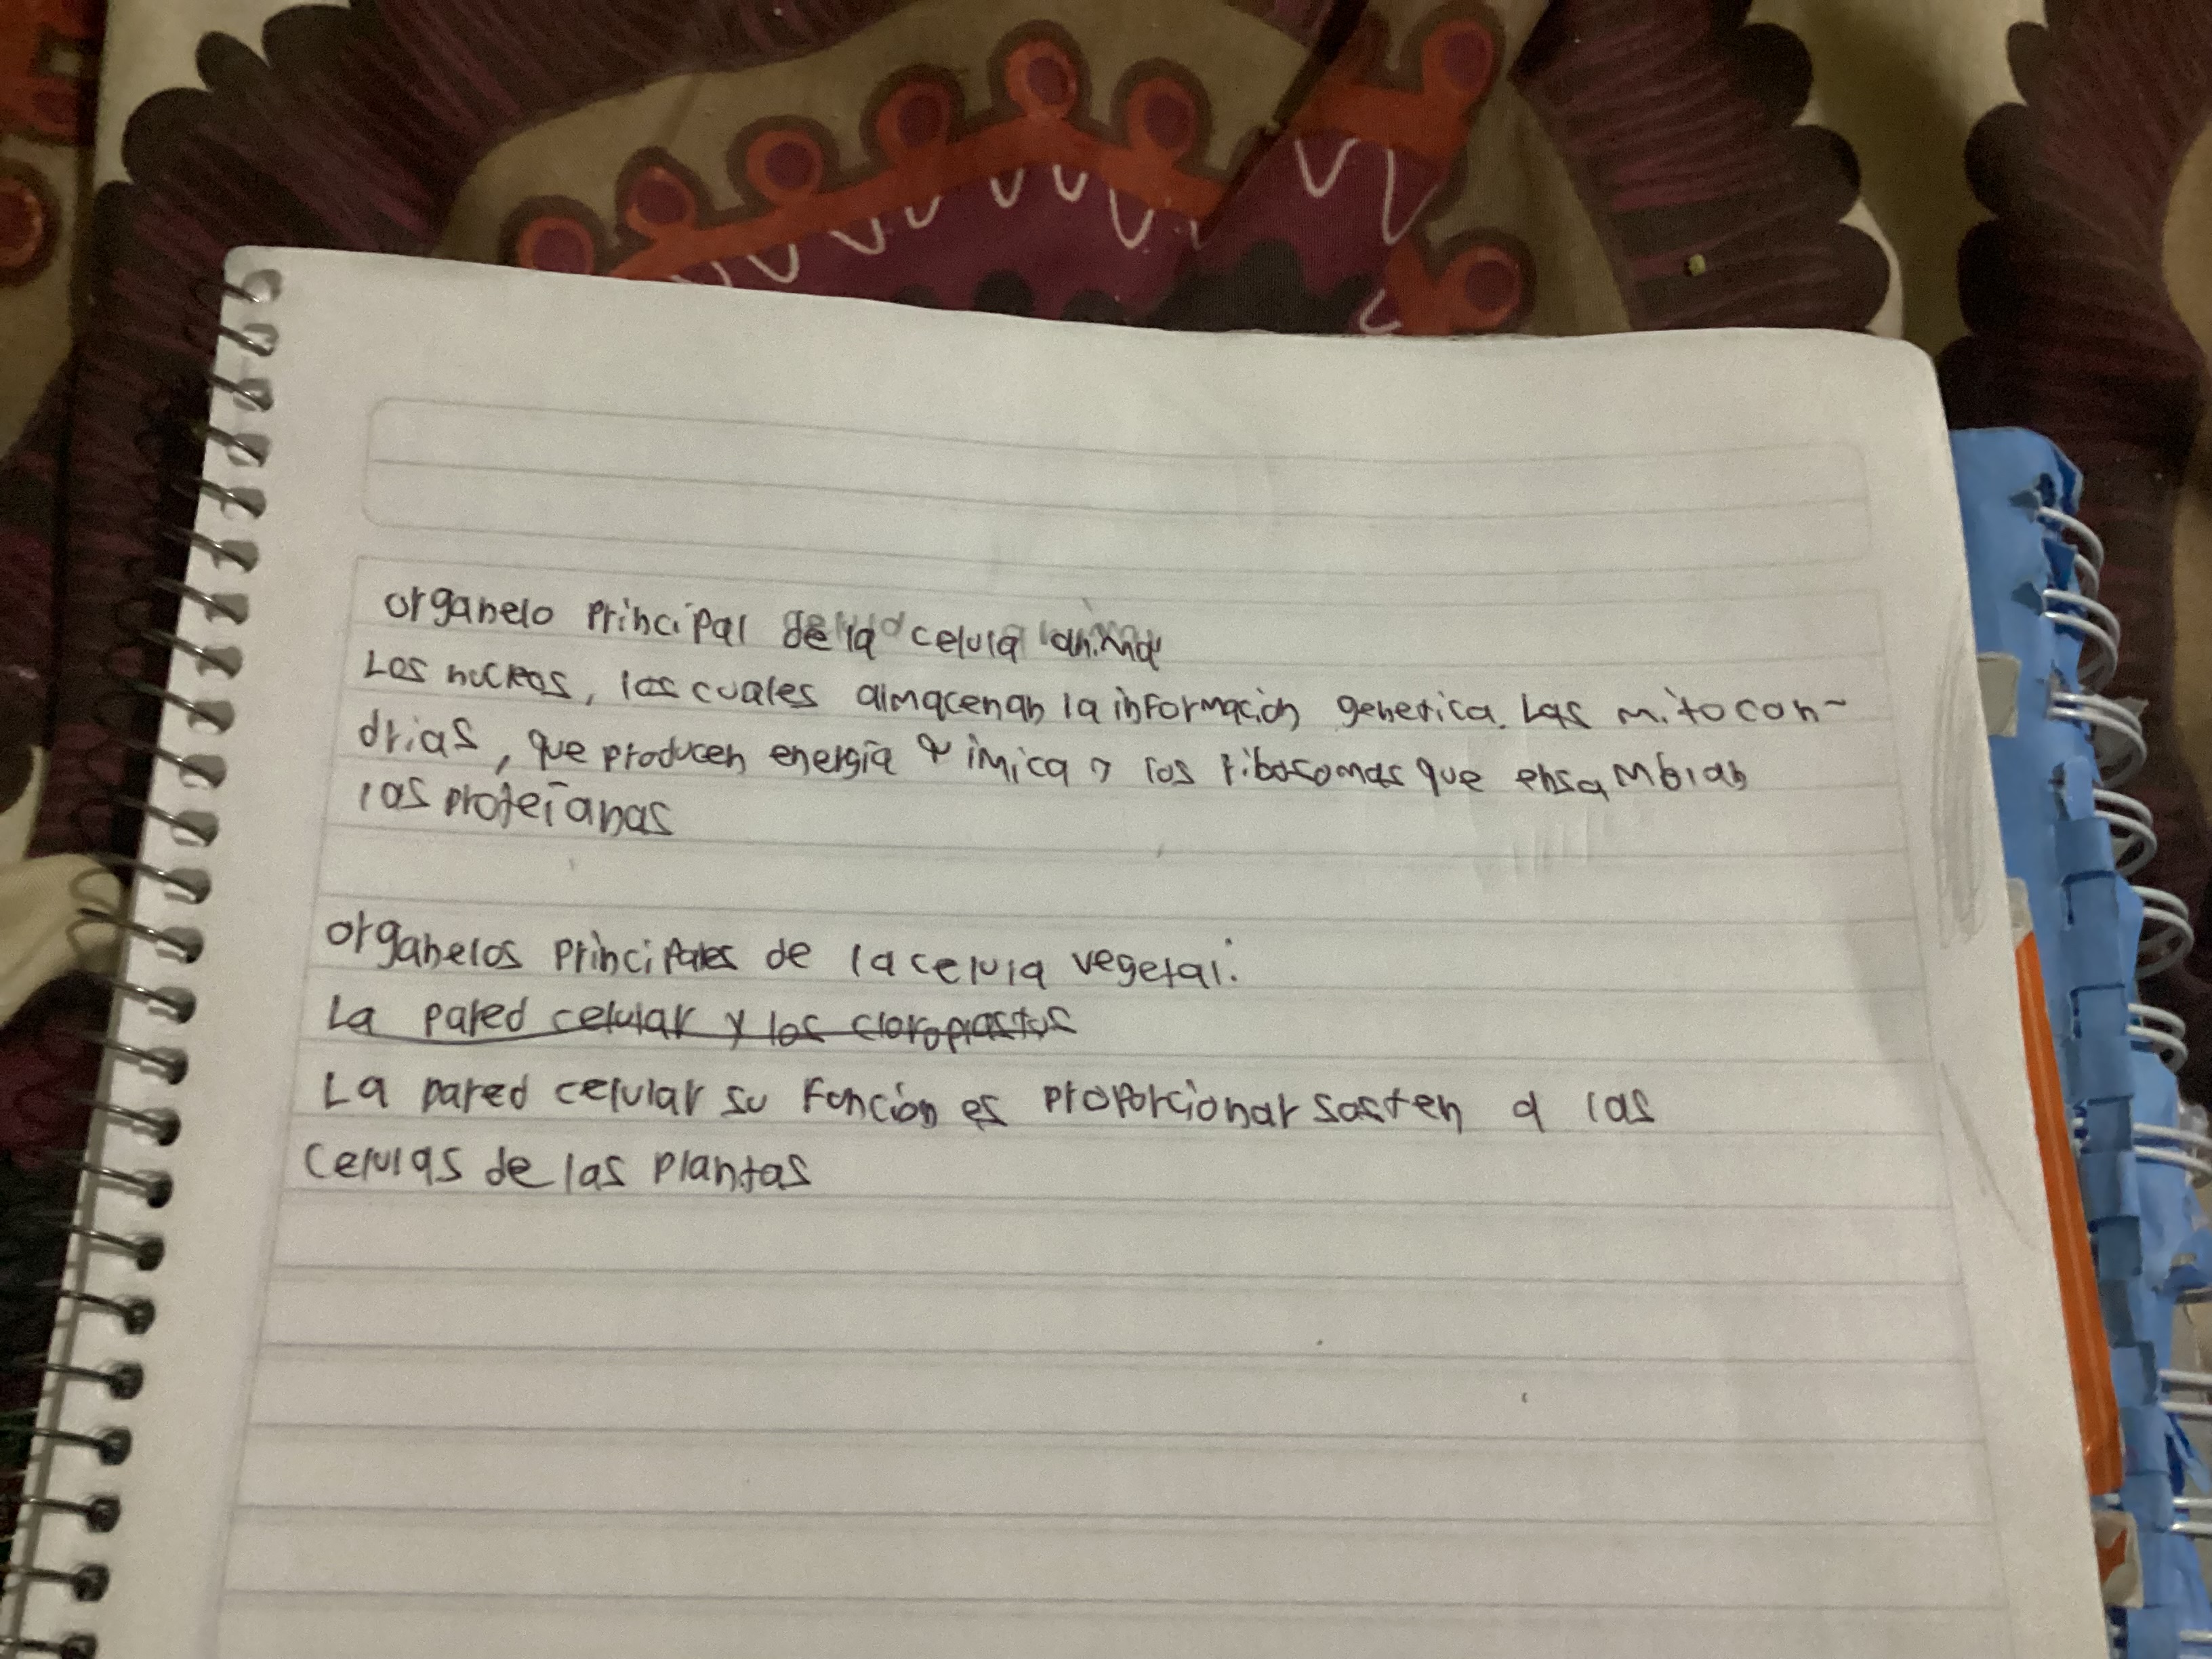 organelo principal de la celula animal
Los nucleos, los cuales almacenan la información genetica. Las mitocon-
drias, que producen energía química y los ribosomas que ensamblan
las proteíanas
organelos principales de la celula vegetal:
La pared celular y los cloroplastos
La pared celular su función es proporcionar sosten a las
celulas de las plantas